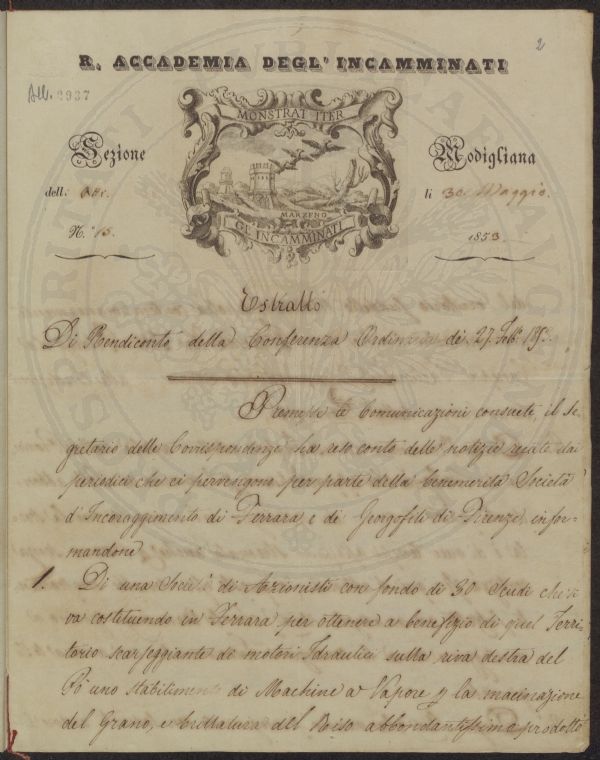 2
R. ACCADEMIA DEGL' INCAMMINATI
All. 2937
MONSTRAT ITER
Sezione
Modigliana
dell:
li 30. Maggio.
MARZENO
GL'INCAMMINATI
N.° 15.
1853.
Estratto
Di Rendiconto della Conferenza Ordinaria dei 27. Feb.°
Premesse le Comunicazioni consuete, il Se-
gretario delle Corrispondenze ha reso conto delle notizie recate dai
periodici che ci pervengono per parte della benemerita Società
d'Incoraggimento di Ferrara e di Georgofili di Firenze infor-
mandone
1. Di una Società di Azionisti con fondo di 30 Scudi che si
va costituendo in Ferrara per ottenere a benefizio di quel Terri-
torio scarseggiante di motori Idraulici sulla riva destra del
Pò uno stabilimento di Machine a Vapore p la macinazione
del Grano, e brillatura del Riso abbondantissimo prodotto